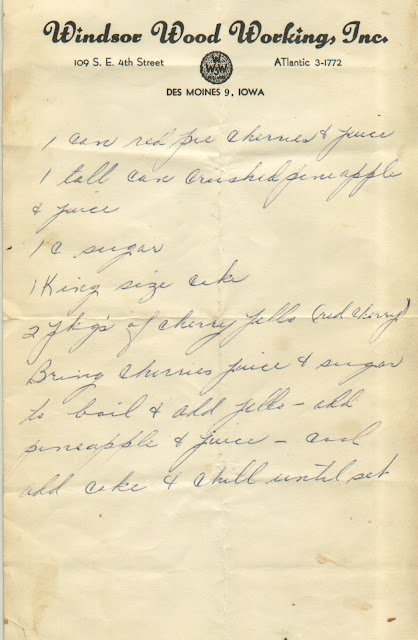 Windsor Wood Working, Inc.
109 S. E. 4th Street
ATlantic 3-1772
DES MOINES 9, IOWA
1 can red pie cherries & juice
1 tall can crushed pineapple
& juice
1 c sugar
1 King size coke
2 pkg's of cherry jello (red cherry)
Bring cherries juice & sugar
to boil & add jello - add
pineapple & juice - cool
add coke & chill until set